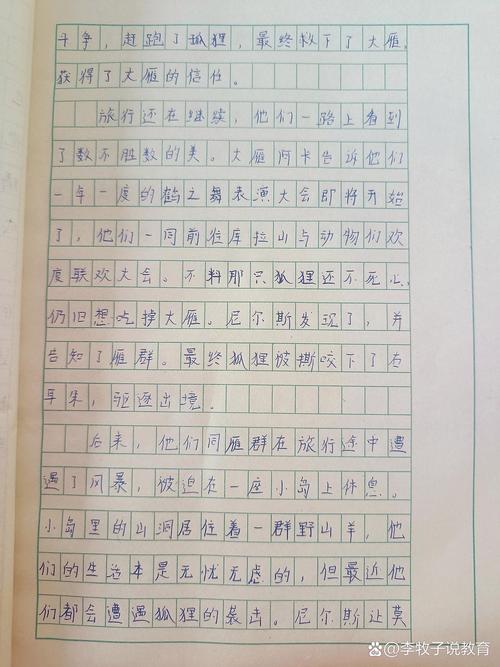 斗争，赶跑了狐狸，最终救下了大雁，
获得了大雁的信任。
旅行还在继续，他们一路上看到
了数不胜数的美。大雁阿卡告诉他们
一年一度的鹤之舞表演大会即将开始
了，他们一同前往库拉山与动物们欢
度联欢大会。不料那只狐狸还不死心，
仍旧想吃掉大雁。尼尔斯发现了，并
告知了雁群。最终狐狸被撕咬下了右
耳朵，驱逐出境。
后来，他们同雁群在旅行途中遭
遇了风暴，被迫在一座小岛上休息。
小岛里的山洞居住着一群野山羊，他
们的生活本是无忧无虑的，但最近他
们都会遭遇狐狸的袭击。尼尔斯让莫
@李牧子说教育